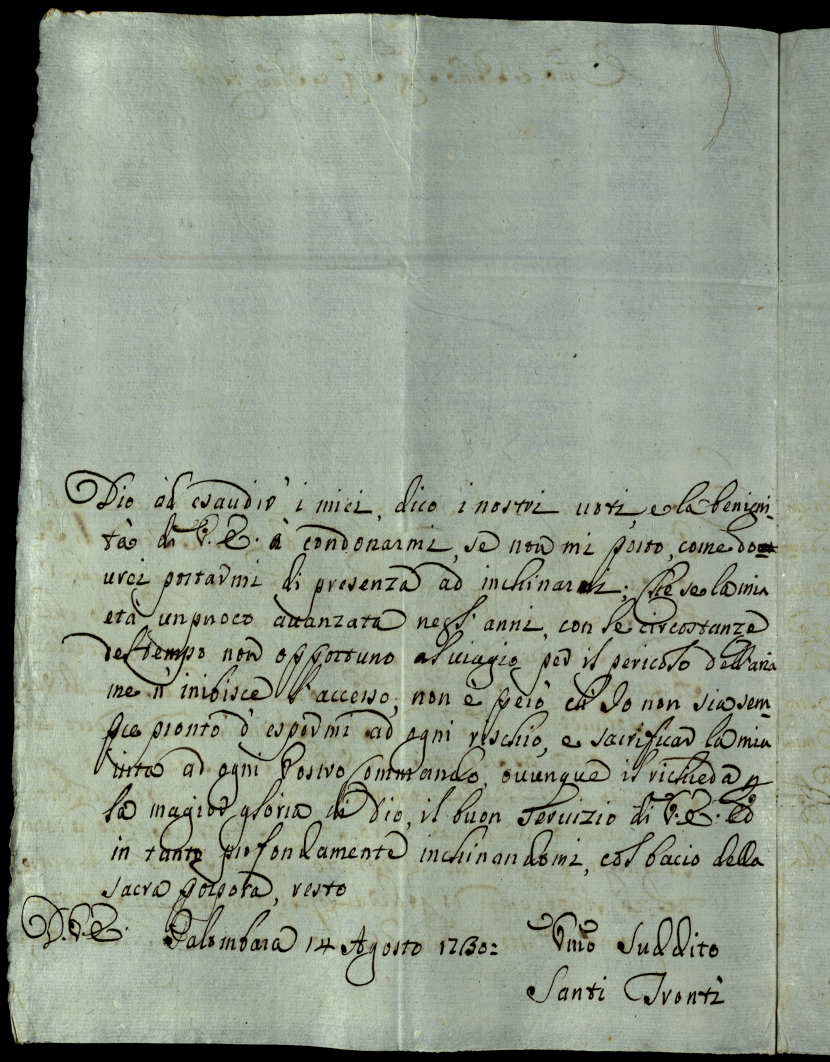 Dio ad esaudir' i miei, dico i nostri voti, e la benigni-
tà di V. E. à condonarmi, se non mi porto, come do=
vrei portarmi di presenza ad inchinarmi; Che se la mia
età un puoco avanzata negl' anni, con le circostanze
del tempo non opportuno al viagio per il pericolo dell'aria
me n' inibisce l' accesso, non è però ch' Io non sia sem-
pre pronto d' espormi ad ogni rischio, e sacrificar la mia
vita ad ogni Vostro Commando, ovunque il richieda p
la magior gloria di Dio, il buon Servizio di V. E. Ed
in tanto profondamente inchinandomi, col bacio della
sacra porpora, resto
D. V. E. Palombara 14 Agosto 1730:
Vmo Suddito
Santi Tronti